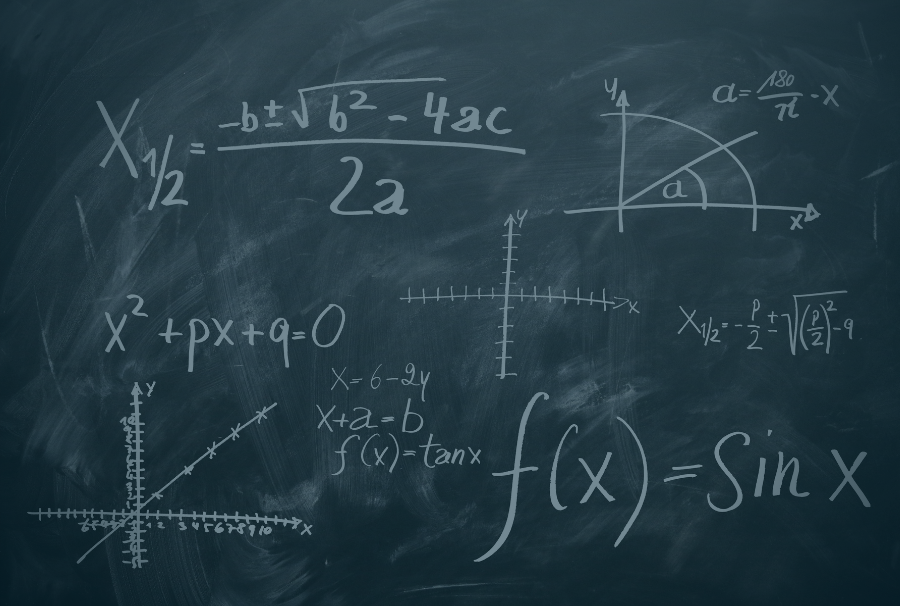 X1/2 = -b ± √b² - 4ac / 2a
y
a = 180/π · x
a
x
y
x
x² + px + q = 0
X1/2 = - p/2 ± √(p/2)² - q
x = 6 - 2y
x + a = b
f(x) = tan x
f(x) = Sin x
y
1 2 3 4 5 6 7 8 9 10
x